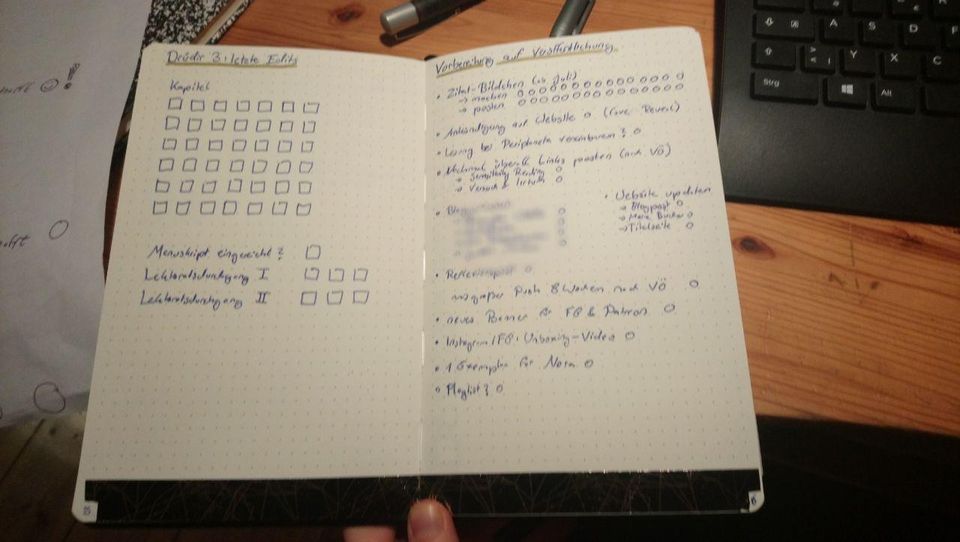 Drúdir 3: letzte Edits
Kapitel
Manuskript eingereicht?
Lektoratsdurchgang I
Lektoratsdurchgang II
5
Vorbereitung auf Veröffentlichung
• Zitat-Bildchen (ab Juli)
→ machen
→ posten
• Ankündigung auf Website (Cover Reveal)
• Lesung bei Periplaneta vereinbaren?
• Nochmal überall Links posten (nach VÖ)
→ Sensitivity Reading
→
• Website updaten
→ Blogpost
→ Meine Bücher
→ Titelseite
• Rezensionspost
großer Push 8 Wochen nach VÖ
• neues Banner für FB & Patreon
• Instagram/FB: Unboxing-Video
• 1 Exemplar für Nora
• Playlist?
6
Strg
Alt
A
S
D
F
Y
X
C